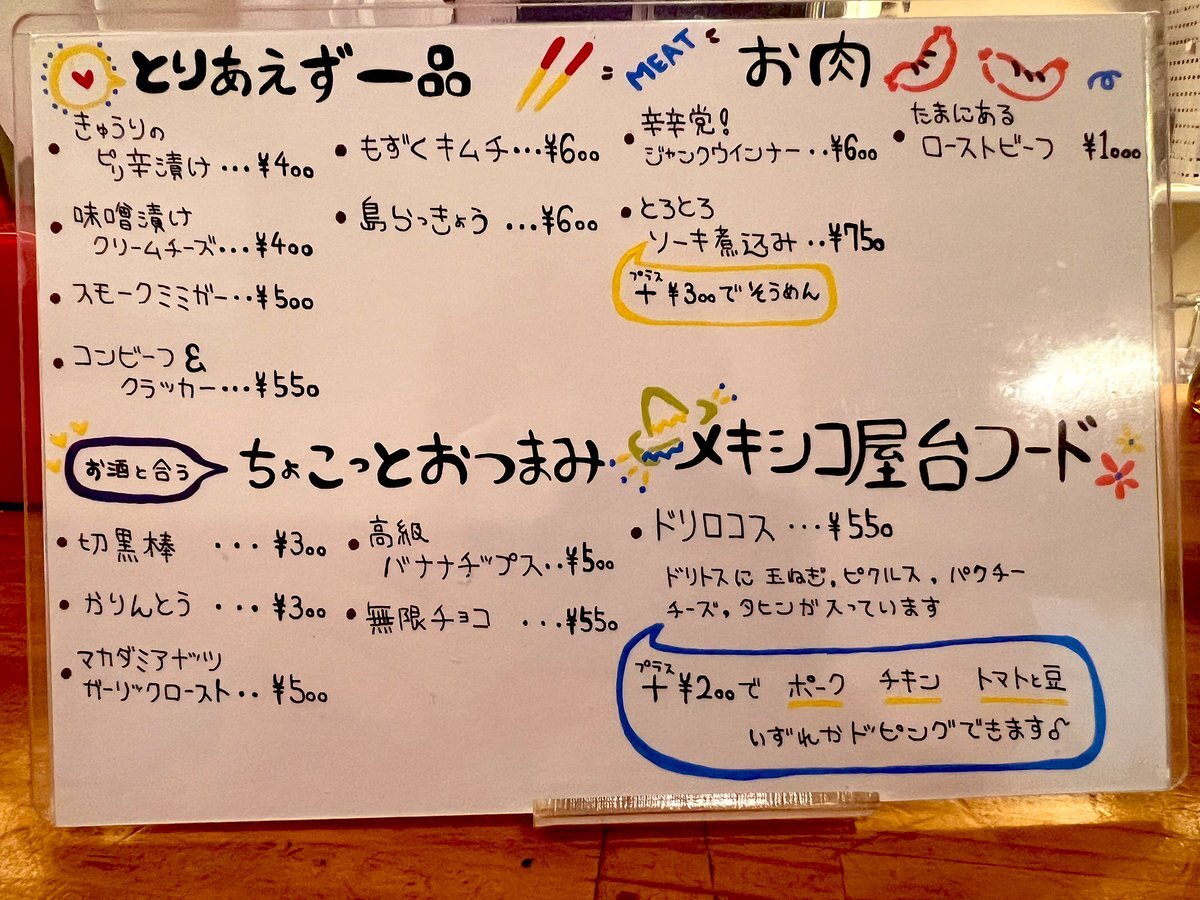 とりあえず一品
きゅうりの
ピリ辛漬け…¥400
味噌漬け
クリームチーズ…¥400
スモークミミガー‥¥500
コンビーフ&
クラッカー…¥550
もずくキムチ…¥600
島らっきょう…¥600
MEAT
お肉
辛辛党!
ジャンクウインナー‥¥600
とろとろ
ソーキ煮込み‥¥750
プラス
+¥300でそうめん
たまにある
ローストビーフ ¥1000
お酒と合う
ちょこっとおつまみ
切黒棒 …¥300
かりんとう …¥300
マカダミアナッツ
ガーリックロースト‥¥500
高級
バナナチップス‥¥500
無限チョコ …¥550
メキシコ屋台フード
ドリロコス…¥550
ドリトスに玉ねぎ,ピクルス,パクチー
チーズ,タヒンが入っています
プラス
+¥200で ポーク チキン トマトと豆
いずれかドッピングできます♪